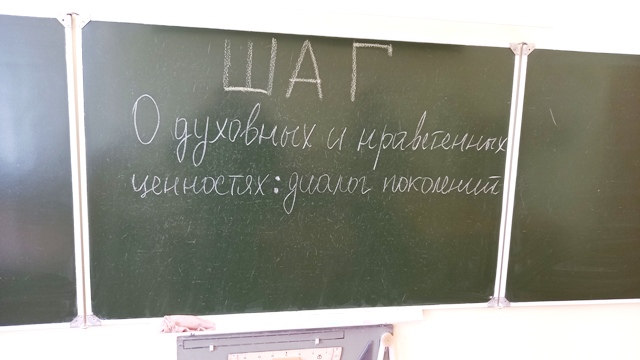 ШАГ
О духовных и нравственных
ценностях: диалог поколений